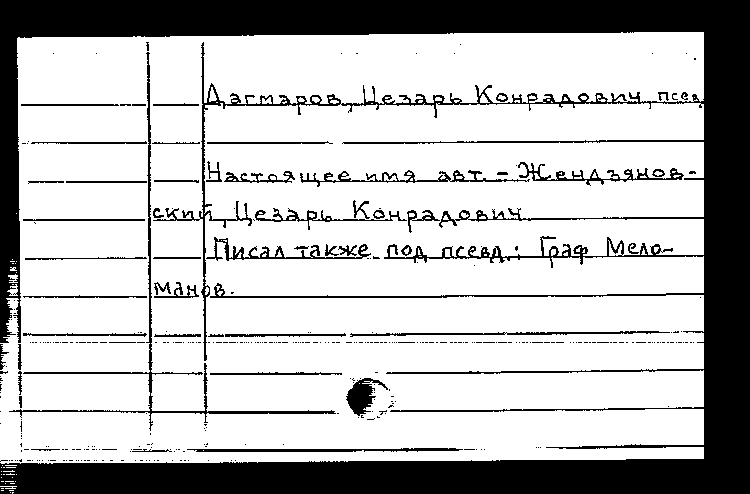 Дагмаров, Цезарь Конрадович, псевд.
Настоящее имя авт. – Жендзянов-
ский, Цезарь Конрадович.
Писал также под псевд.: Граф Мело-
манов.